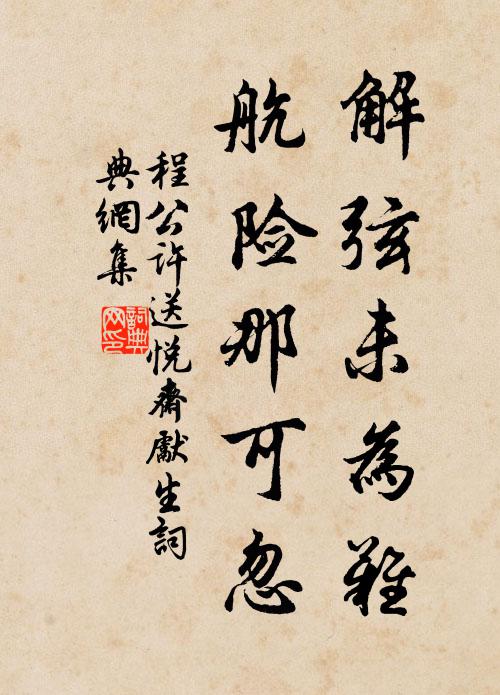 解弦未為難
航险那可忽
程公许送悦齋獻生詞
典網集
詞典網印